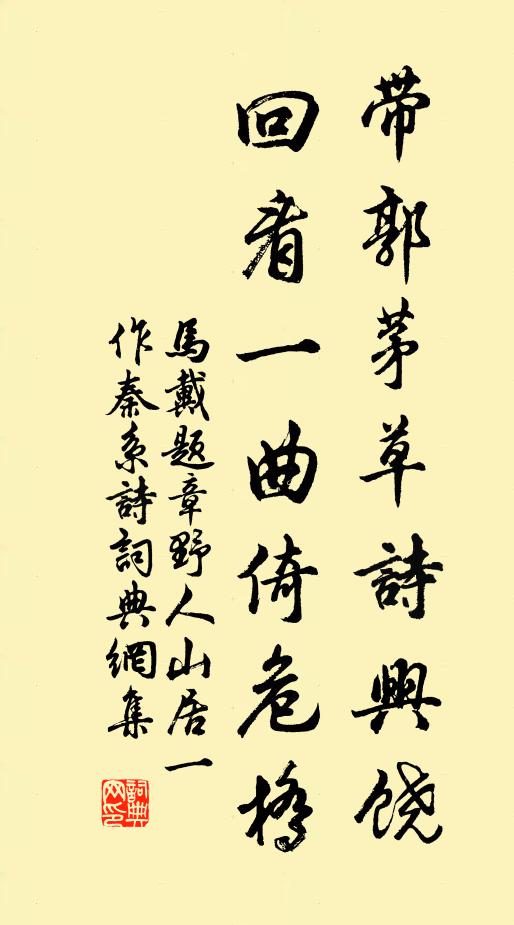 带郭茅草詩興饶
回看一曲倚危橋
馬戴题章野人山居一
作秦系詩詞典網集
詞典网印